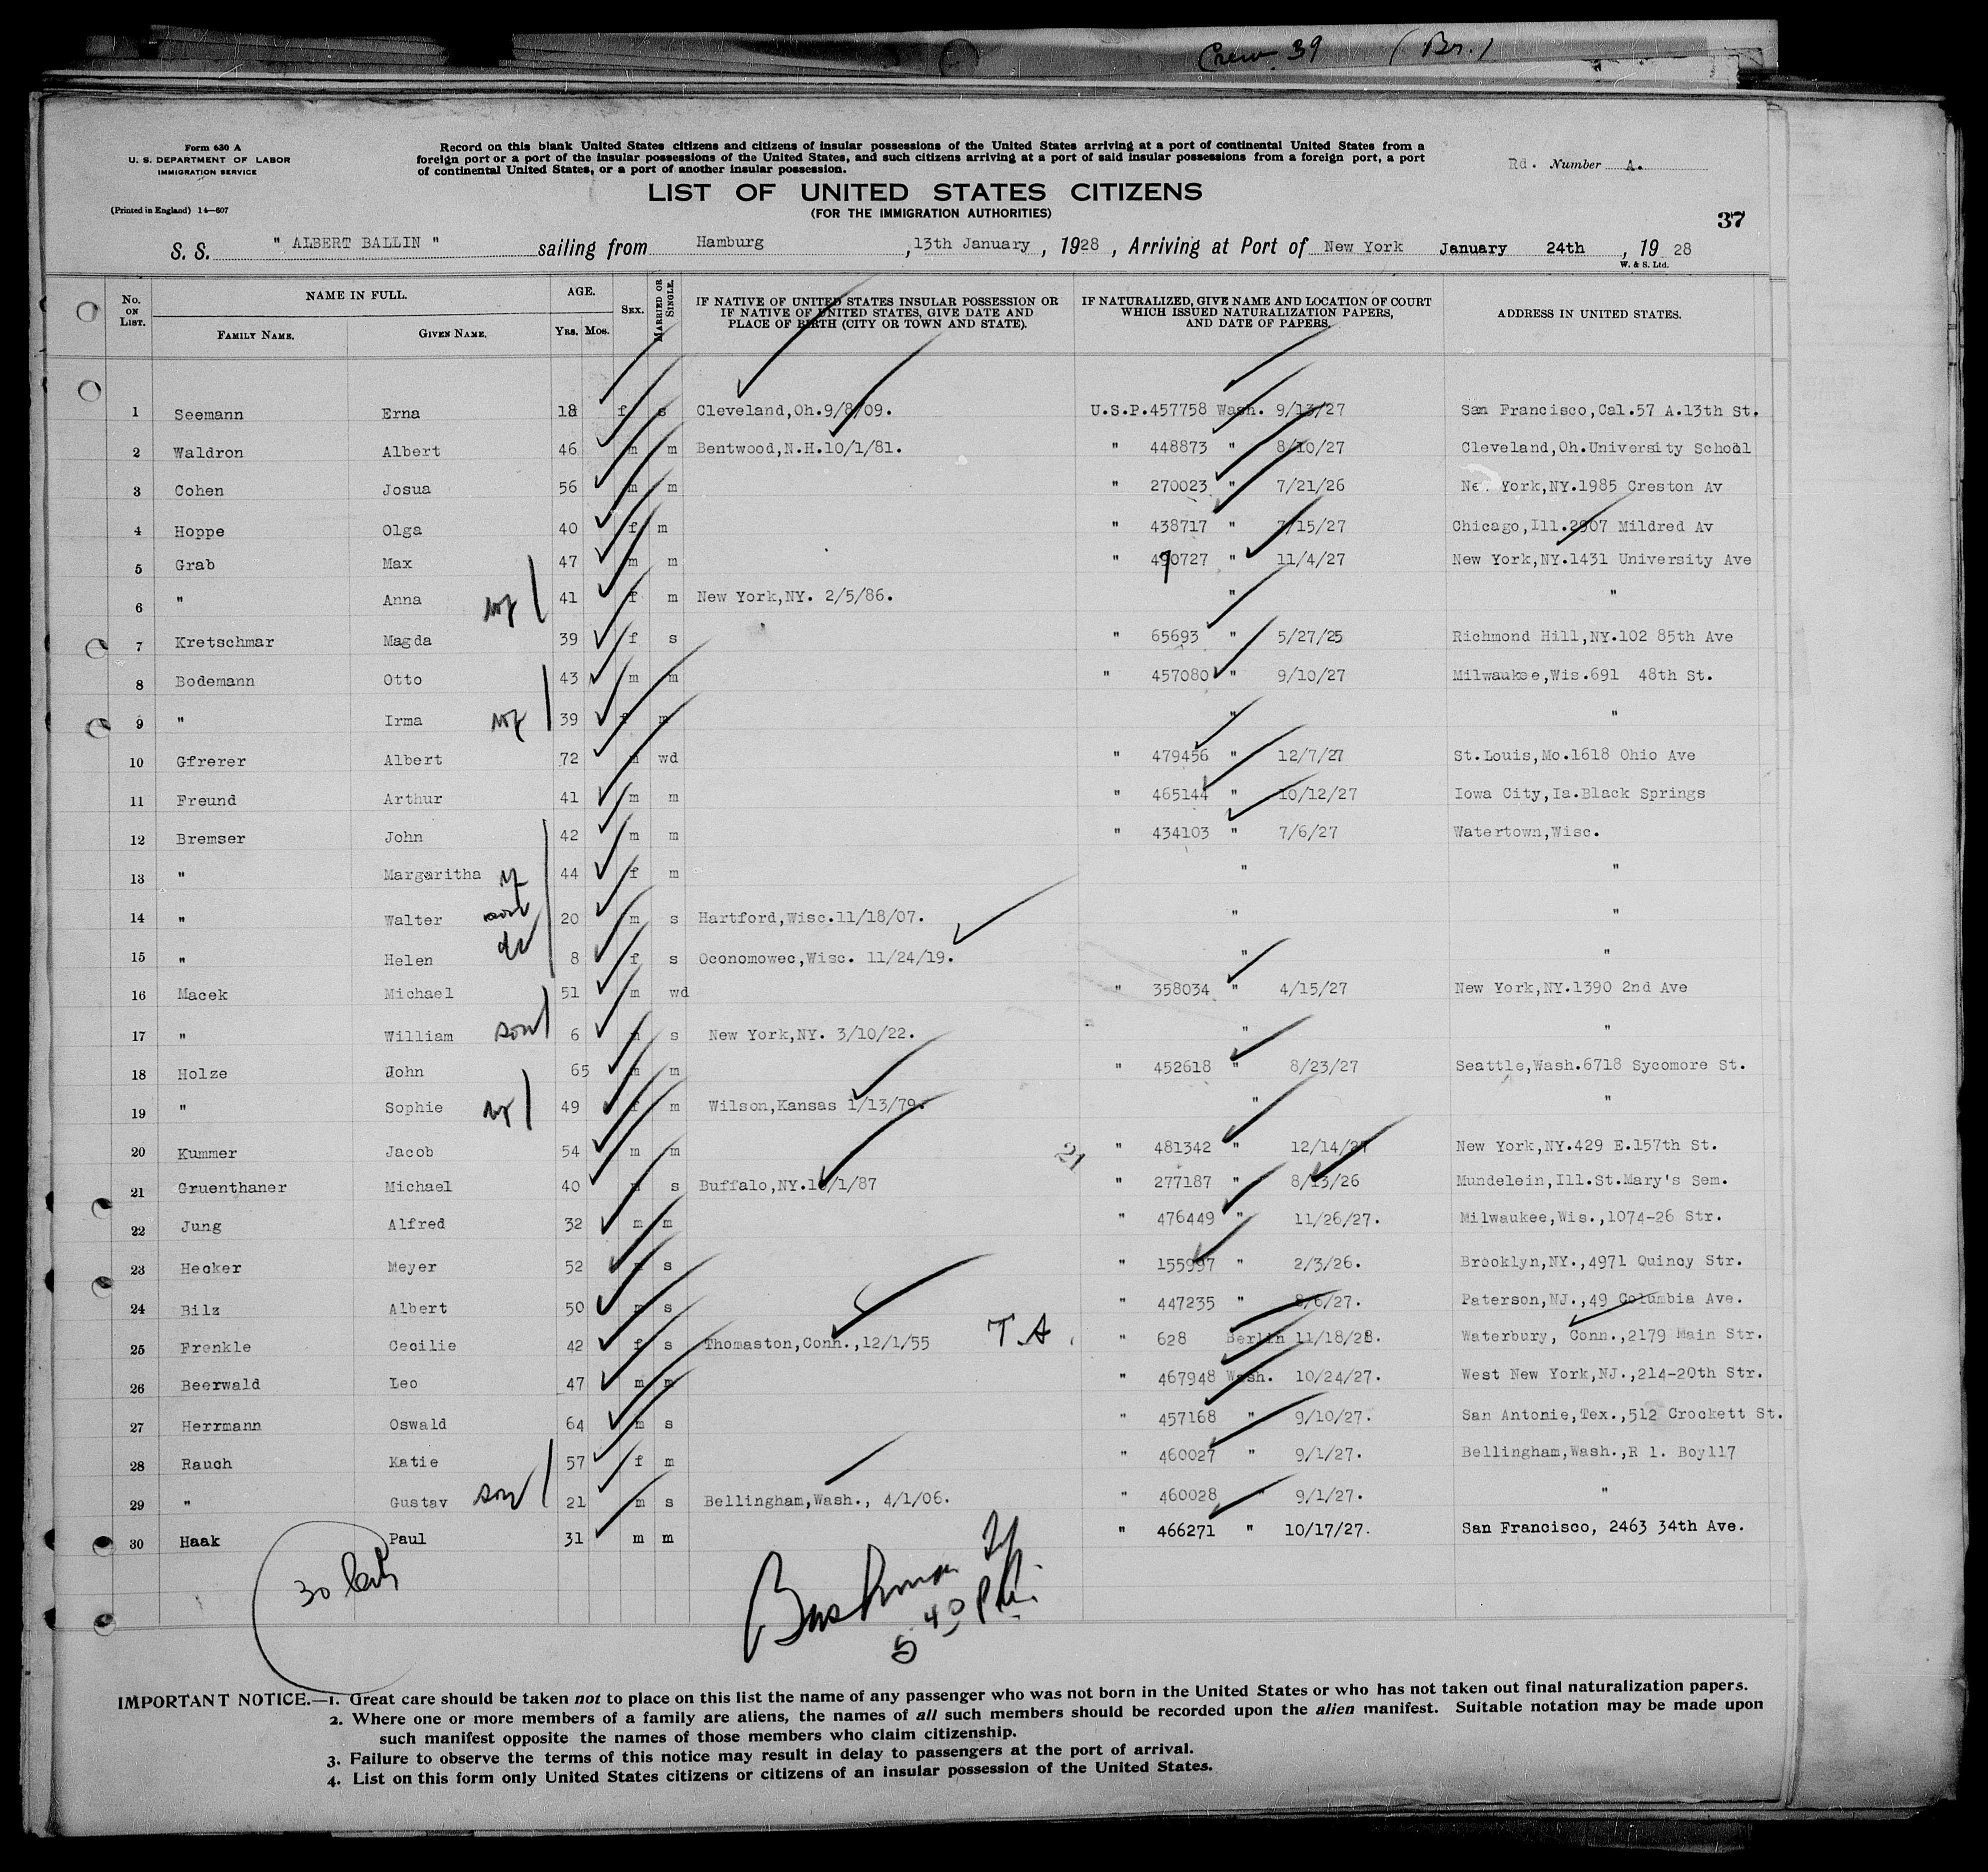 Crew. 39 (Br.)
Form 630 A
U. S. DEPARTMENT OF LABOR
IMMIGRATION SERVICE
(Printed in England) 14—607
Record on this blank United States citizens and citizens of insular possessions of the United States arriving at a port of continental United States from a
foreign port or a port of the insular possessions of the United States, and such citizens arriving at a port of said insular possessions from a foreign port, a port
of continental United States, or a port of another insular possession.
Rd. Number A.
LIST OF UNITED STATES CITIZENS
(FOR THE IMMIGRATION AUTHORITIES)
37
S. S. " ALBERT BALLIN " sailing from Hamburg , 13th January , 1928 , Arriving at Port of New York January 24th , 19 28
W. & S. Ltd.
No. ON LIST. NAME IN FULL. FAMILY NAME. GIVEN NAME. AGE. YRS. MOS. SEX. MARRIED OR SINGLE. IF NATIVE OF UNITED STATES INSULAR POSSESSION OR IF NATIVE OF UNITED STATES, GIVE DATE AND PLACE OF BIRTH (CITY OR TOWN AND STATE). IF NATURALIZED, GIVE NAME AND LOCATION OF COURT WHICH ISSUED NATURALIZATION PAPERS, AND DATE OF PAPERS. ADDRESS IN UNITED STATES.
1 Seemann Erna 18 f s Cleveland,Oh.9/8/09. U.S.P.457758 Wash. 9/13/27 San Francisco,Cal.57 A.13th St.
2 Waldron Albert 46 m m Bentwood,N.H.10/1/81. " 448873 " 8/10/27 Cleveland,Oh.University School
3 Cohen Josua 56 m m " 270023 " 7/21/26 New York,NY.1985 Creston Av
4 Hoppe Olga 40 f m " 438717 " 7/15/27 Chicago,Ill.2907 Mildred Av
5 Grab Max 47 m m " 490727 " 11/4/27 New York,NY.1431 University Ave
6 " Anna wf 41 f m New York,NY. 2/5/86. " "
7 Kretschmar Magda 39 f s " 65693 " 5/27/25 Richmond Hill,NY.102 85th Ave
8 Bodemann Otto 43 m m " 457080 " 9/10/27 Milwaukee,Wis.691 48th St.
9 " Irma wf 39 f m " "
10 Gfrerer Albert 72 m wd " 479456 " 12/7/27 St.Louis,Mo.1618 Ohio Ave
11 Freund Arthur 41 m m " 465144 " 10/12/27 Iowa City,Ia.Black Springs
12 Bremser John 42 m m " 434103 " 7/6/27 Watertown,Wisc.
13 " Margaritha wf 44 f m " "
14 " Walter son 20 m s Hartford,Wisc.11/18/07. " "
15 " Helen da 8 f s Oconomowec,Wisc. 11/24/19. " "
16 Macek Michael 51 m wd " 358034 " 4/15/27 New York,NY.1390 2nd Ave
17 " William son 6 m s New York,NY. 3/10/22. " "
18 Holze John 65 m m " 452618 " 8/23/27 Seattle,Wash.6718 Sycomore St.
19 " Sophie wf 49 f m Wilson,Kansas 1/13/79. " "
20 Kummer Jacob 54 m m 21 " 481342 " 12/14/27 New York,NY.429 E.157th St.
21 Gruenthaner Michael 40 m s Buffalo,NY.10/1/87 " 277187 " 8/13/26 Mundelein,Ill.St.Mary's Sem.
22 Jung Alfred 32 m m " 476449 " 11/26/27. Milwaukee,Wis.,1074-26 Str.
23 Hecker Meyer 52 m s " 155997 " 2/3/26. Brooklyn,NY.,4971 Quincy Str.
24 Bilz Albert 50 m s " 447235 " 8/6/27. Paterson,NJ.,49 Columbia Ave.
25 Frenkle Cecilie 42 f s Thomaston,Conn.,12/1/55 T.A. " 628 Berlin 11/18/28. Waterbury, Conn.,2179 Main Str.
26 Beerwald Leo 47 m m " 467948 Wash. 10/24/27. West New York,NJ.,214-20th Str.
27 Herrmann Oswald 64 m s " 457168 " 9/10/27. San Antonie,Tex.,512 Crockett St.
28 Rauch Katie 57 f m " 460027 " 9/1/27. Bellingham,Wash.,R 1. Boy117
29 " Gustav son 21 m s Bellingham,Wash., 4/1/06. " 460028 " 9/1/27. "
30 Haak Paul 31 m m " 466271 " 10/17/27. San Francisco, 2463 34th Ave.
30
IMPORTANT NOTICE.—1. Great care should be taken not to place on this list the name of any passenger who was not born in the United States or who has not taken out final naturalization papers.
2. Where one or more members of a family are aliens, the names of all such members should be recorded upon the alien manifest. Suitable notation may be made upon
such manifest opposite the names of those members who claim citizenship.
3. Failure to observe the terms of this notice may result in delay to passengers at the port of arrival.
4. List on this form only United States citizens or citizens of an insular possession of the United States.